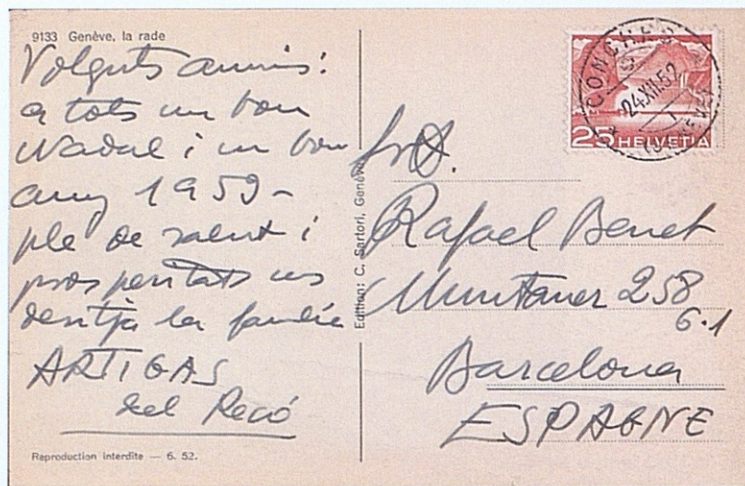 9133 Genève, la rade
Volguts amics:
a tots un bon
Nadal i un bon
any 1953 -
ple de salut i
prosperitats us
desitja la família
ARTIGAS
del Recó
Reproduction interdite — 6. 52.
Edition: C. Sartori, Genève
25 HELVETIA
CONCHES
24.XII.52
Rafael Benet
Muntaner 258
6.1
Barcelona
ESPAGNE